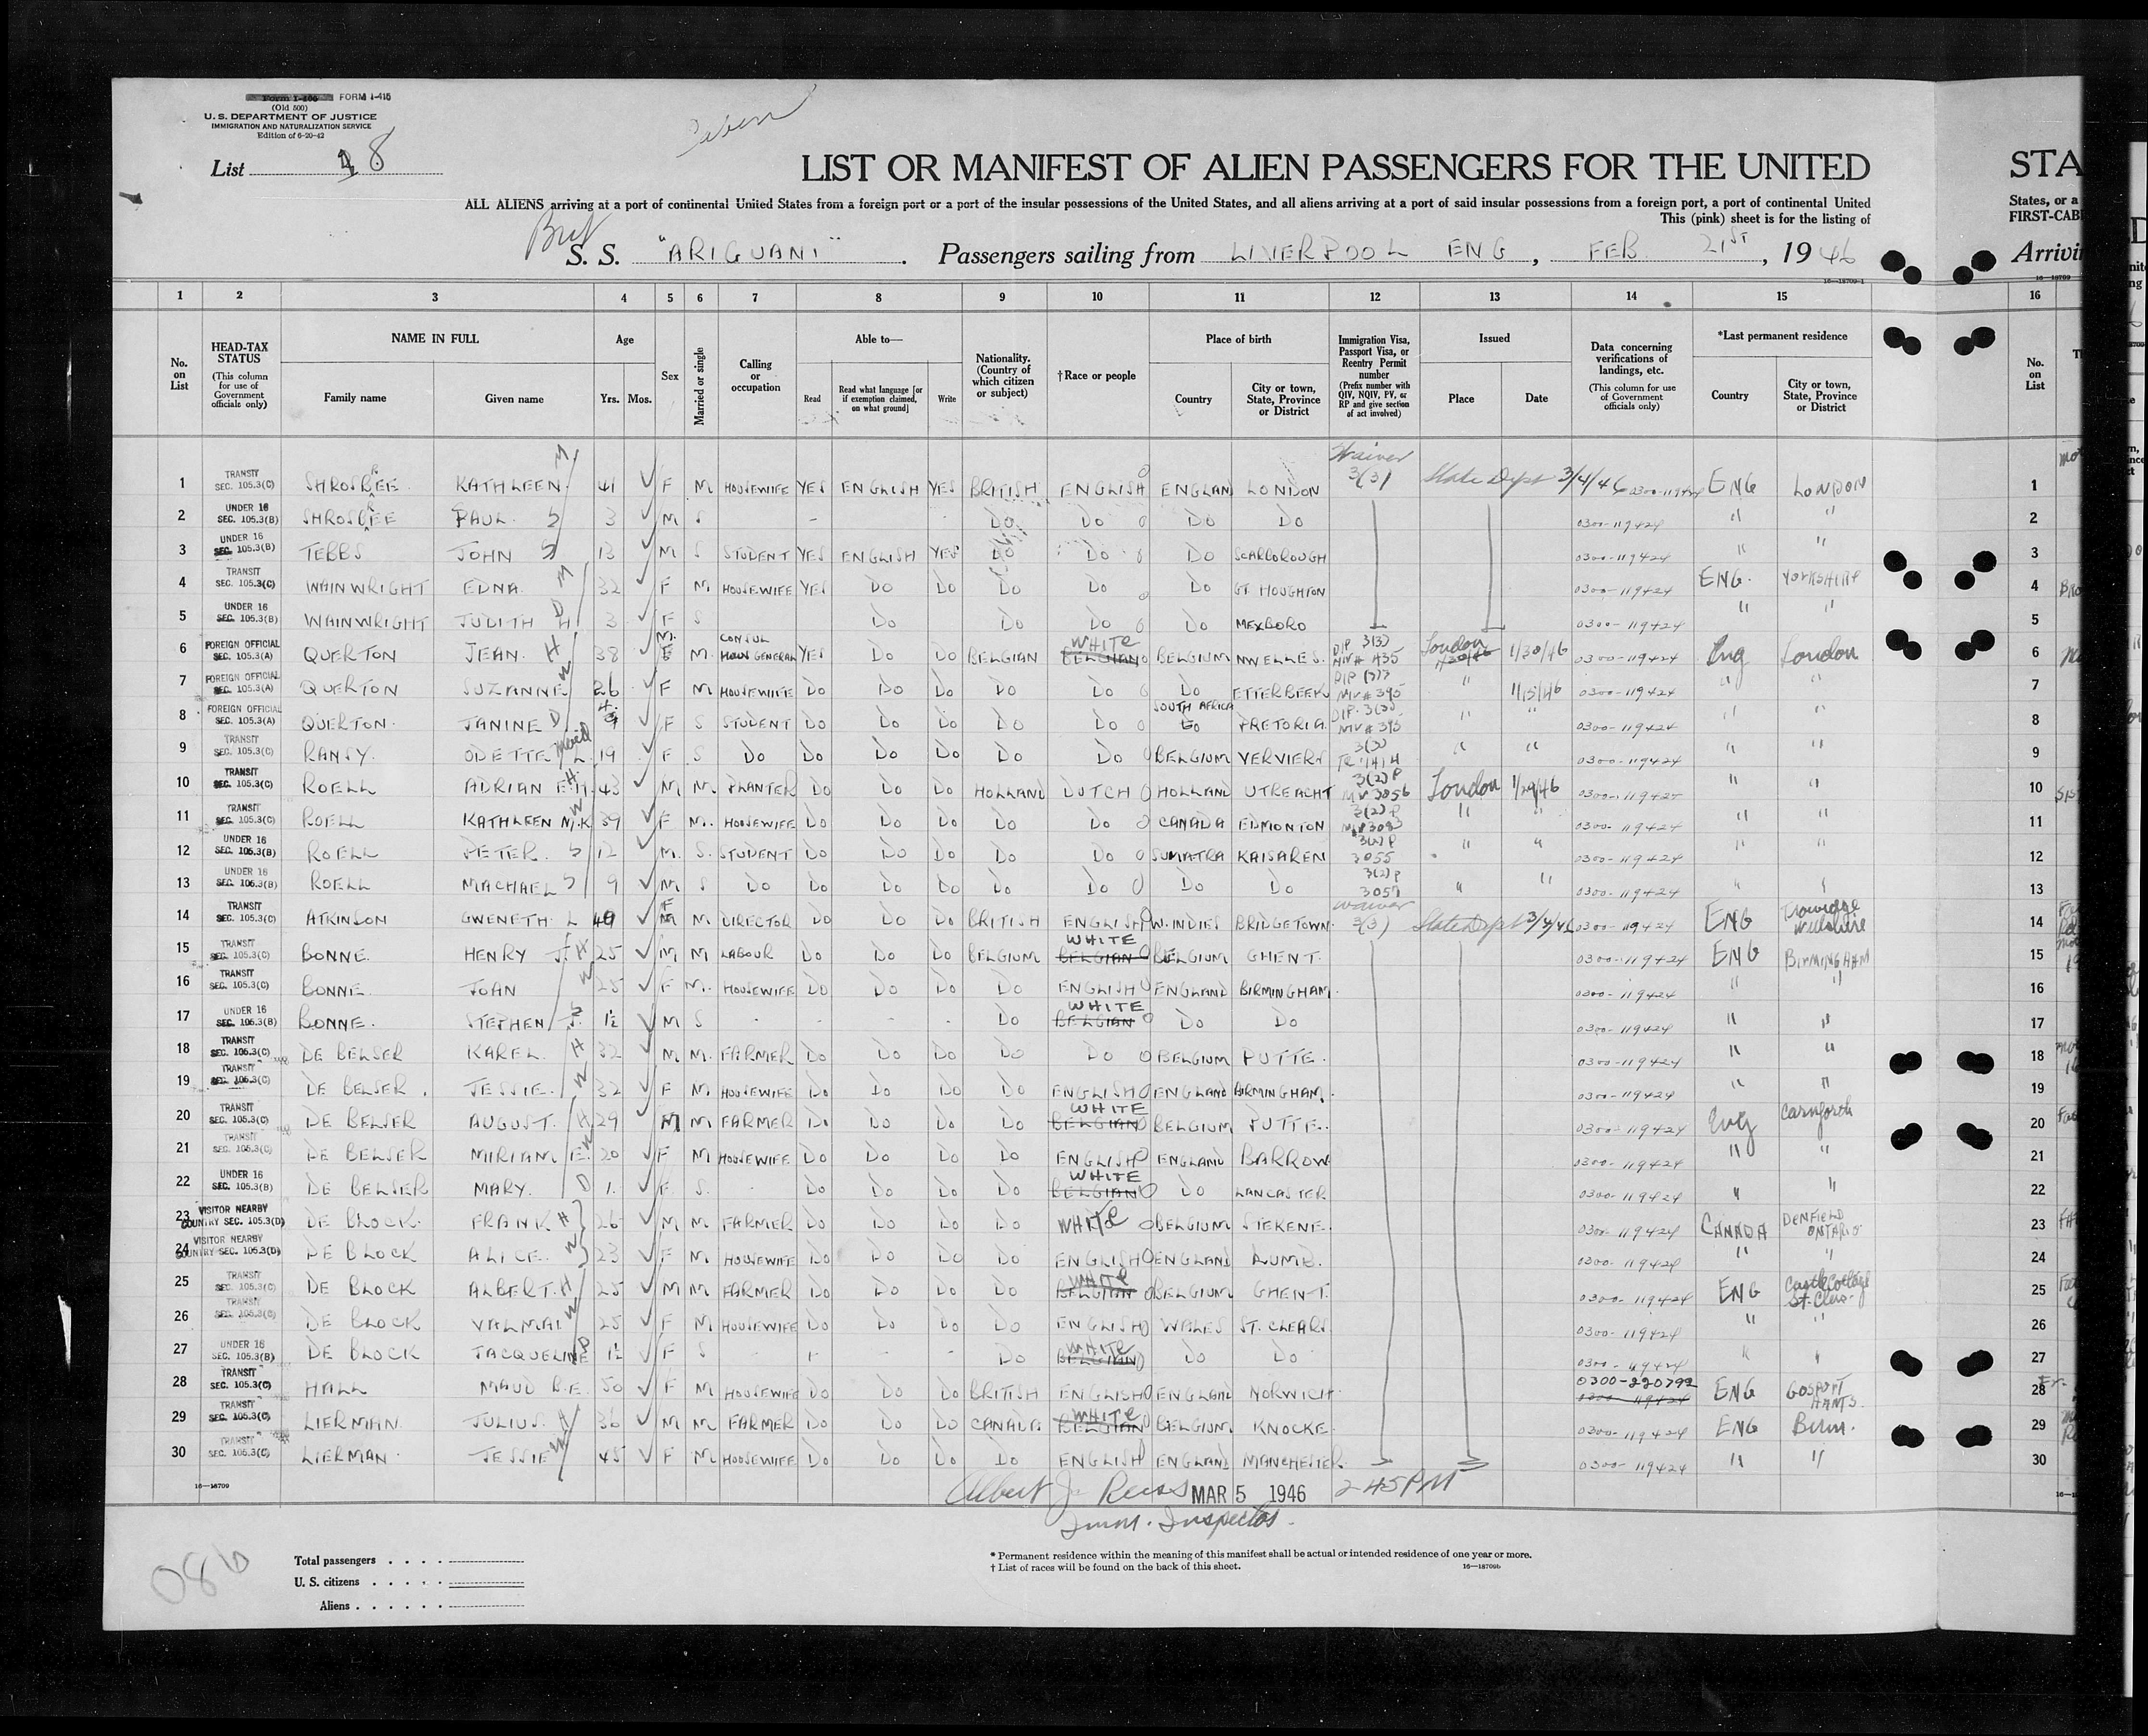 Form I-406 FORM I-415
(Old 500)
U. S. DEPARTMENT OF JUSTICE
IMMIGRATION AND NATURALIZATION SERVICE
Edition of 6-20-42
List 8
LIST OR MANIFEST OF ALIEN PASSENGERS FOR THE UNITED STA
ALL ALIENS arriving at a port of continental United States from a foreign port or a port of the insular possessions of the United States, and all aliens arriving at a port of said insular possessions from a foreign port, a port of continental United States, or a
This (pink) sheet is for the listing of FIRST-CAB
Brit
S. S. "ARIGUANI". Passengers sailing from LIVERPOOL ENG, FEB 21ST, 1946 Arrivi
16—18709-1
1 2 3 4 5 6 7 8 9 10 11 12 13 14 15 16
No. on List
HEAD-TAX STATUS (This column for use of Government officials only)
NAME IN FULL Family name Given name
Age Yrs. Mos.
Sex
Married or single
Calling or occupation
Able to— Read Read what language [or if exemption claimed, on what ground] Write
Nationality. (Country of which citizen or subject)
†Race or people
Place of birth Country City or town, State, Province or District
Immigration Visa, Passport Visa, or Reentry Permit number (Prefix number with QIV, NQIV, PV, or RP and give section of act involved)
Issued Place Date
Data concerning verifications of landings, etc. (This column for use of Government officials only)
*Last permanent residence Country City or town, State, Province or District
No. on List
1 TRANSIT SEC. 105.3(C) SHROSBREE KATHLEEN M 41 F M HOUSEWIFE YES ENGLISH YES BRITISH ENGLISH ENGLAND LONDON Waiver 3(3) State Dept 3/4/46 0300-119424 ENG LONDON 1
2 UNDER 16 SEC. 105.3(B) SHROSBREE PAUL S 3 M S - Do Do Do Do 0300-119424 " " 2
3 UNDER 16 SEC. 105.3(B) TEBBS JOHN S 13 M S STUDENT YES ENGLISH YES Do Do Do SCARBOROUGH 0300-119424 " " 3
4 TRANSIT SEC. 105.3(C) WAINWRIGHT EDNA M 32 F M HOUSEWIFE YES Do Do Do Do Do GT. HOUGHTON 0300-119424 ENG. YORKSHIRE 4
5 UNDER 16 SEC. 105.3(B) WAINWRIGHT JUDITH H D 3 F S Do Do Do Do MEXBORO 0300-119424 " " 5
6 FOREIGN OFFICIAL SEC. 105.3(A) QUERTON JEAN H 38 M. M CONSUL GENERAL YES Do Do BELGIAN WHITE BELGIAN BELGIUM NIVELLES DIP 3(3) NIV# 435 London 1/30/46 0300-119424 Eng London 6
7 FOREIGN OFFICIAL SEC. 105.3(A) QUERTON SUZANNE W 26 F M HOUSEWIFE Do Do Do Do Do Do ETTERBEEK DIP 3(3) NIV# 395 " 1/15/46 0300-119424 " " 7
8 FOREIGN OFFICIAL SEC. 105.3(A) QUERTON JANINE D 4 F S STUDENT Do Do Do Do Do SOUTH AFRICA PRETORIA DIP. 3(3) NIV# 395 " " 0300-119424 " " 8
9 TRANSIT SEC. 105.3(C) RANSY ODETTE L. Maid 19 F S Do Do Do Do Do Do BELGIUM VERVIERS 3(3) " " 0300-119424 " " 9
10 TRANSIT SEC. 105.3(C) ROELL ADRIAN E.H. H 43 M M PLANTER Do Do Do HOLLAND DUTCH HOLLAND UTRECHT 3(2)P 3056 London 1/29/46 0300-119424 " " 10
11 TRANSIT SEC. 105.3(C) ROELL KATHLEEN M.K. W 39 F M. HOUSEWIFE Do Do Do Do Do CANADA EDMONTON 3(2)P " " 0300-119424 " " 11
12 UNDER 16 SEC. 105.3(B) ROELL PETER S 12 M. S. STUDENT Do Do Do Do Do SUMATRA KAISAREN 3(2)P 3055 " " 0300-119424 " " 12
13 UNDER 16 SEC. 105.3(B) ROELL MACHAEL S 9 M S Do Do Do Do Do Do Do Do 3(2)P 3057 " " 0300-119424 " " 13
14 TRANSIT SEC. 105.3(C) ATKINSON GWENETH L 40 F M DIRECTOR Do Do Do BRITISH ENGLISH W. INDIES BRIDGETOWN. Waiver 3(3) State Dept 3/4/46 0300-119424 ENG Trowbridge Wiltshire 14
15 TRANSIT SEC. 105.3(C) BONNE HENRY J. H 25 M M LABOUR Do Do Do BELGIUM WHITE BELGIAN BELGIUM GHENT 0300-119424 ENG BIRMINGHAM 15
16 TRANSIT SEC. 105.3(C) BONNE JOAN W 25 F M. HOUSEWIFE Do Do Do Do ENGLISH ENGLAND BIRMINGHAM 0300-119424 " " 16
17 UNDER 16 SEC. 105.3(B) BONNE STEPHEN J. S 1½ M S - - - - Do WHITE BELGIAN Do Do 0300-119424 " " 17
18 TRANSIT SEC. 105.3(C) DE BELSER KAREL H 32 M M. FARMER Do Do Do Do Do BELGIUM PUTTE 0300-119424 " " 18
19 TRANSIT SEC. 105.3(C) DE BELSER JESSIE W 32 F M. HOUSEWIFE Do Do Do Do ENGLISH ENGLAND BIRMINGHAM. 0300-119424 " " 19
20 TRANSIT SEC. 105.3(C) DE BELSER AUGUST H 29 M M FARMER Do Do Do Do WHITE BELGIAN BELGIUM PUTTE 0300-119424 Eng Carnforth 20
21 TRANSIT SEC. 105.3(C) DE BELSER MIRIAM E. W 20 F M HOUSEWIFE Do Do Do Do ENGLISH ENGLAND BARROW 0300-119424 " " 21
22 UNDER 16 SEC. 105.3(B) DE BELSER MARY D 1 F S. Do Do Do Do WHITE BELGIAN Do LANCASTER 0300-119424 " " 22
23 VISITOR NEARBY COUNTRY SEC. 105.3(D) DE BLOCK FRANK H 26 M M FARMER Do Do Do Do WHITE BELGIUM STEKENE 0300-119424 CANADA DENFIELD ONTARIO 23
24 VISITOR NEARBY COUNTRY SEC. 105.3(D) DE BLOCK ALICE W 23 F M HOUSEWIFE Do Do Do Do ENGLISH ENGLAND LUMB. 0300-119424 " " 24
25 TRANSIT SEC. 105.3(C) DE BLOCK ALBERT H 25 M M FARMER Do Do Do Do WHITE BELGIAN BELGIUM GHENT 0300-119424 ENG Castle Cottage St. Clears 25
26 TRANSIT SEC. 105.3(C) DE BLOCK VALMAI W 25 F M HOUSEWIFE Do Do Do Do ENGLISH WALES ST. CLEARS 0300-119424 " " 26
27 UNDER 16 SEC. 105.3(B) DE BLOCK JACQUELINE D 1½ F S - - - - Do WHITE BELGIAN Do Do 0300-119424 " " 27
28 TRANSIT SEC. 105.3(C) HALL MAUD B.E. 50 F M HOUSEWIFE Do Do Do BRITISH ENGLISH ENGLAND NORWICH 0300-220792 0300-119424 ENG GOSPORT HANTS. 28
29 TRANSIT SEC. 105.3(C) LIERMAN JULIUS H 36 M M FARMER Do Do Do CANADA WHITE BELGIAN BELGIUM KNOCKE 0300-119424 ENG Birm. 29
30 TRANSIT SEC. 105.3(C) LIERMAN JESSIE W 45 F M HOUSEWIFE Do Do Do Do ENGLISH ENGLAND MANCHESTER 0300-119424 " " 30
16—18709
Albert J. Reiss MAR 5 1946 2 45 PM
Imm. Inspector
086
Total passengers
U. S. citizens
Aliens
* Permanent residence within the meaning of this manifest shall be actual or intended residence of one year or more.
† List of races will be found on the back of this sheet. 16—18709b